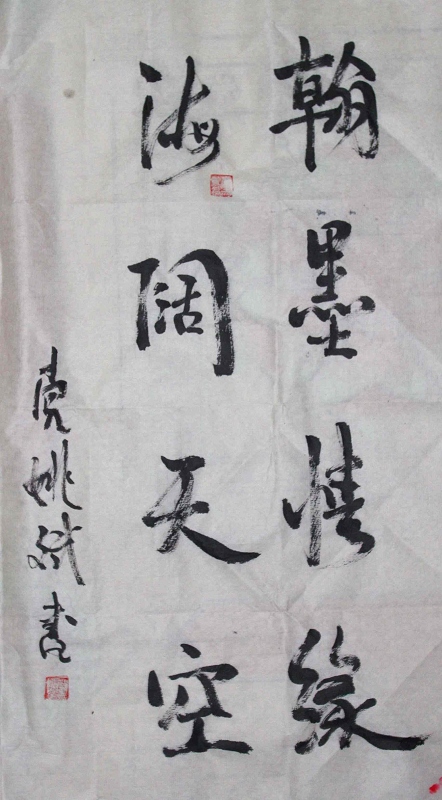 翰墨情缘
海阔天空
姚斌书